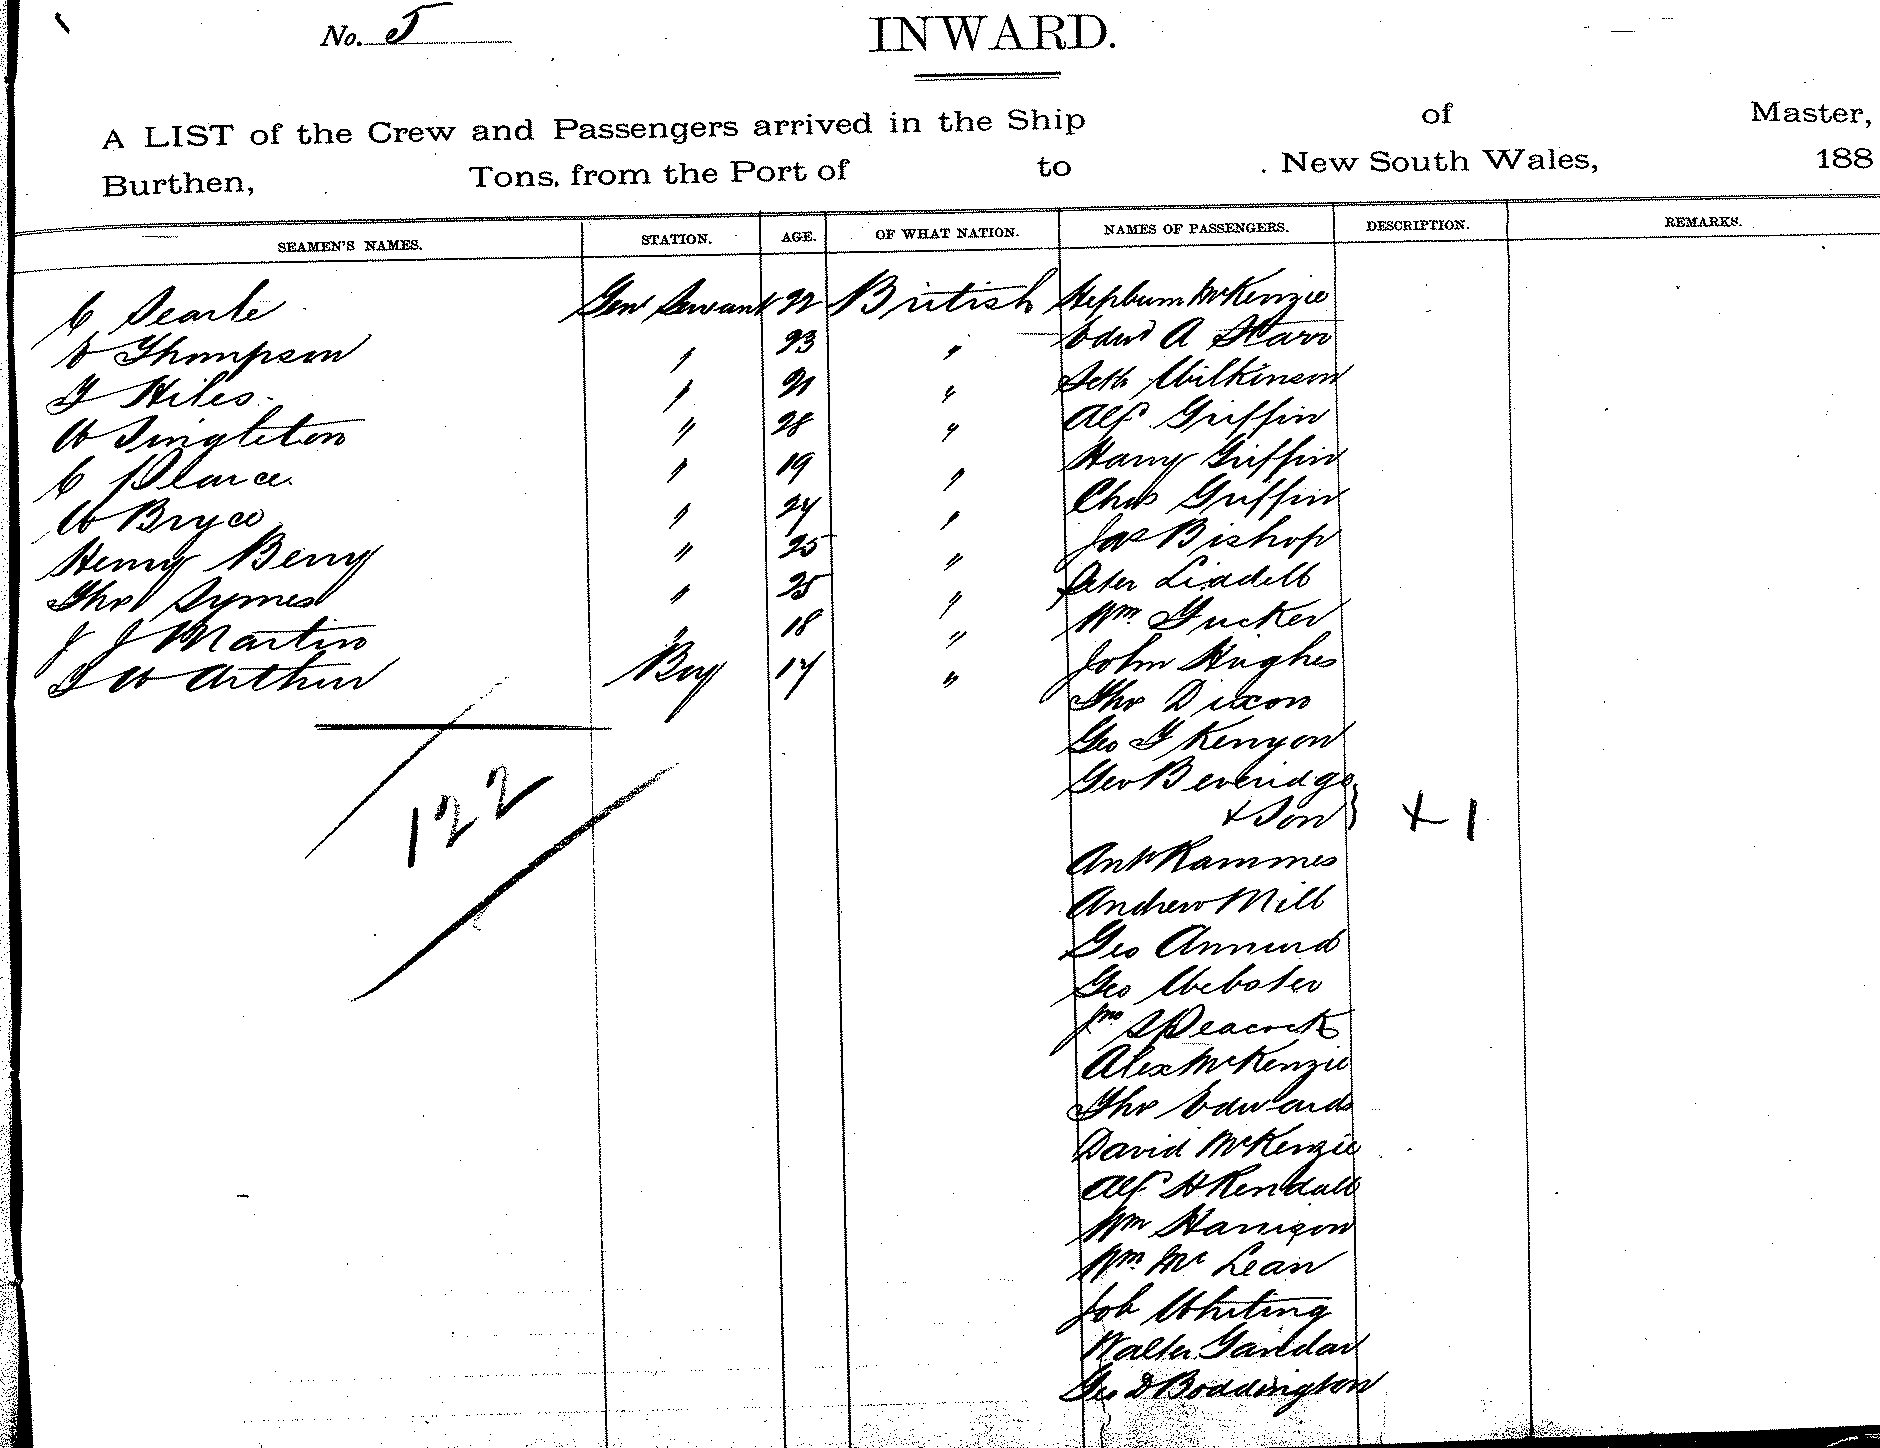 No. 5
INWARD.
A LIST of the Crew and Passengers arrived in the Ship of Master,
Burthen, Tons, from the Port of to New South Wales, 188
SEAMEN'S NAMES. STATION. AGE. OF WHAT NATION. NAMES OF PASSENGERS. DESCRIPTION. REMARKS.
C Searle Genl Servant 22 British Hepburn McKenzie
Thompson " 23 " Edwd A Starr
T Hiles " 21 " Seth Wilkinson
W Singleton " 28 " Alf Griffin
C Pearce " 19 " Harry Griffin
W Bryce " 24 " Chas Griffin
Henry Berry " 25 " Jas Bishop
Thos Symes " 25 " Peter Liddell
J J Martin " 18 " Wm Tucker
T W Arthur Boy 17 " John Hughes
Thos Dixon
Geo T Kenyon
Geo Beveridge
+ Son } + 1
122
Rammes
Andrew Mill
Geo Annund
Geo Webster
Jno S Peacock
Alex McKenzie
Thos Edwards
David McKenzie
Alf H Kendall
Wm Harrison
Wm Mc Lean
Job Whiting
Walter Gandar
Geo D Boddington